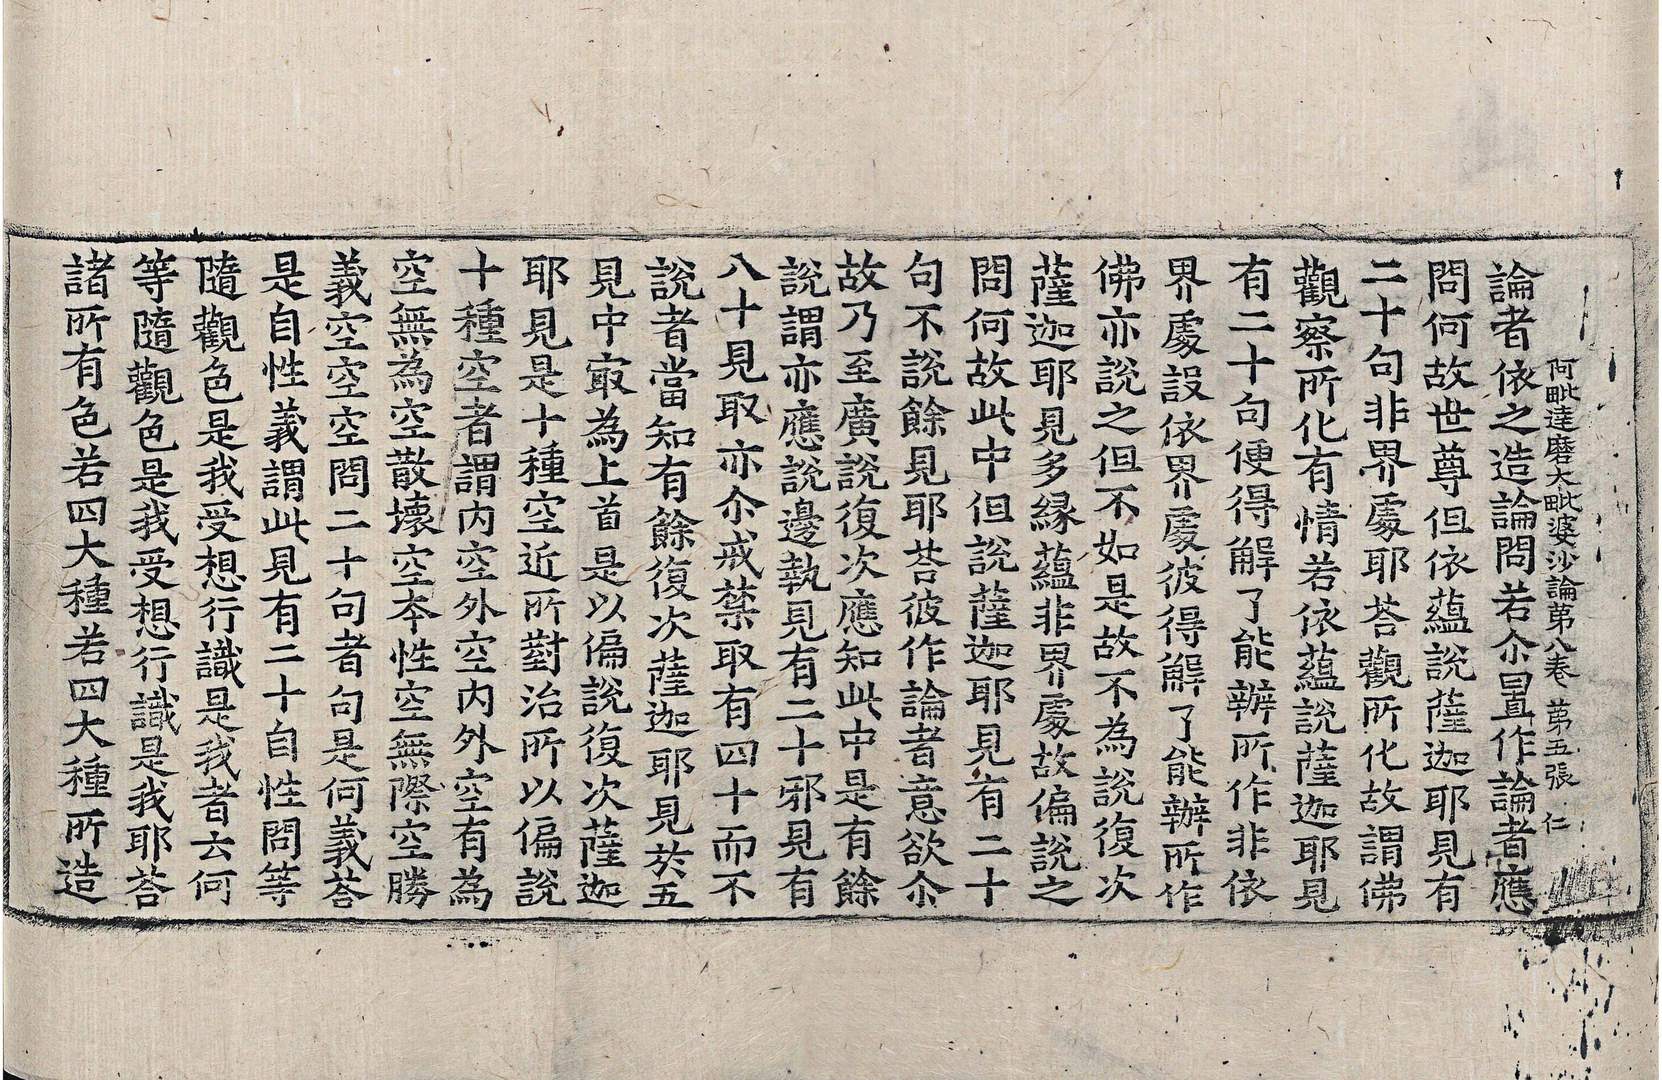 阿毗達磨大毗婆沙論第八卷 第五張 仁
論者依之造論問若尒置作論者應
問何故世尊但依蘊說薩迦耶見有
二十句非界處耶荅觀所化故謂佛
觀察所化有情若依蘊說薩迦耶見
有二十句便得解了能辦所作非依
界處設依界處彼得解了能辦所作
佛亦說之但不如是故不為說復次
薩迦耶見多緣蘊非界處故偏說之
問何故此中但說薩迦耶見有二十
句不說餘見耶荅彼作論者意欲尒
故乃至廣說復次應知此中是有餘
說謂亦應說邊執見有二十邪見有
八十見取亦尒戒禁取有四十而不
說者當知有餘復次薩迦耶見於五
見中㝡為上首是以偏說復次薩迦
耶見是十種空近所對治所以偏說
十種空者謂內空外空內外空有為
空無為空散壞空本性空無際空勝
義空空空問二十句者句是何義荅
是自性義謂此見有二十自性問等
隨觀色是我受想行識是我者云何
等隨觀色是我受想行識是我耶荅
諸所有色若四大種若四大種所造